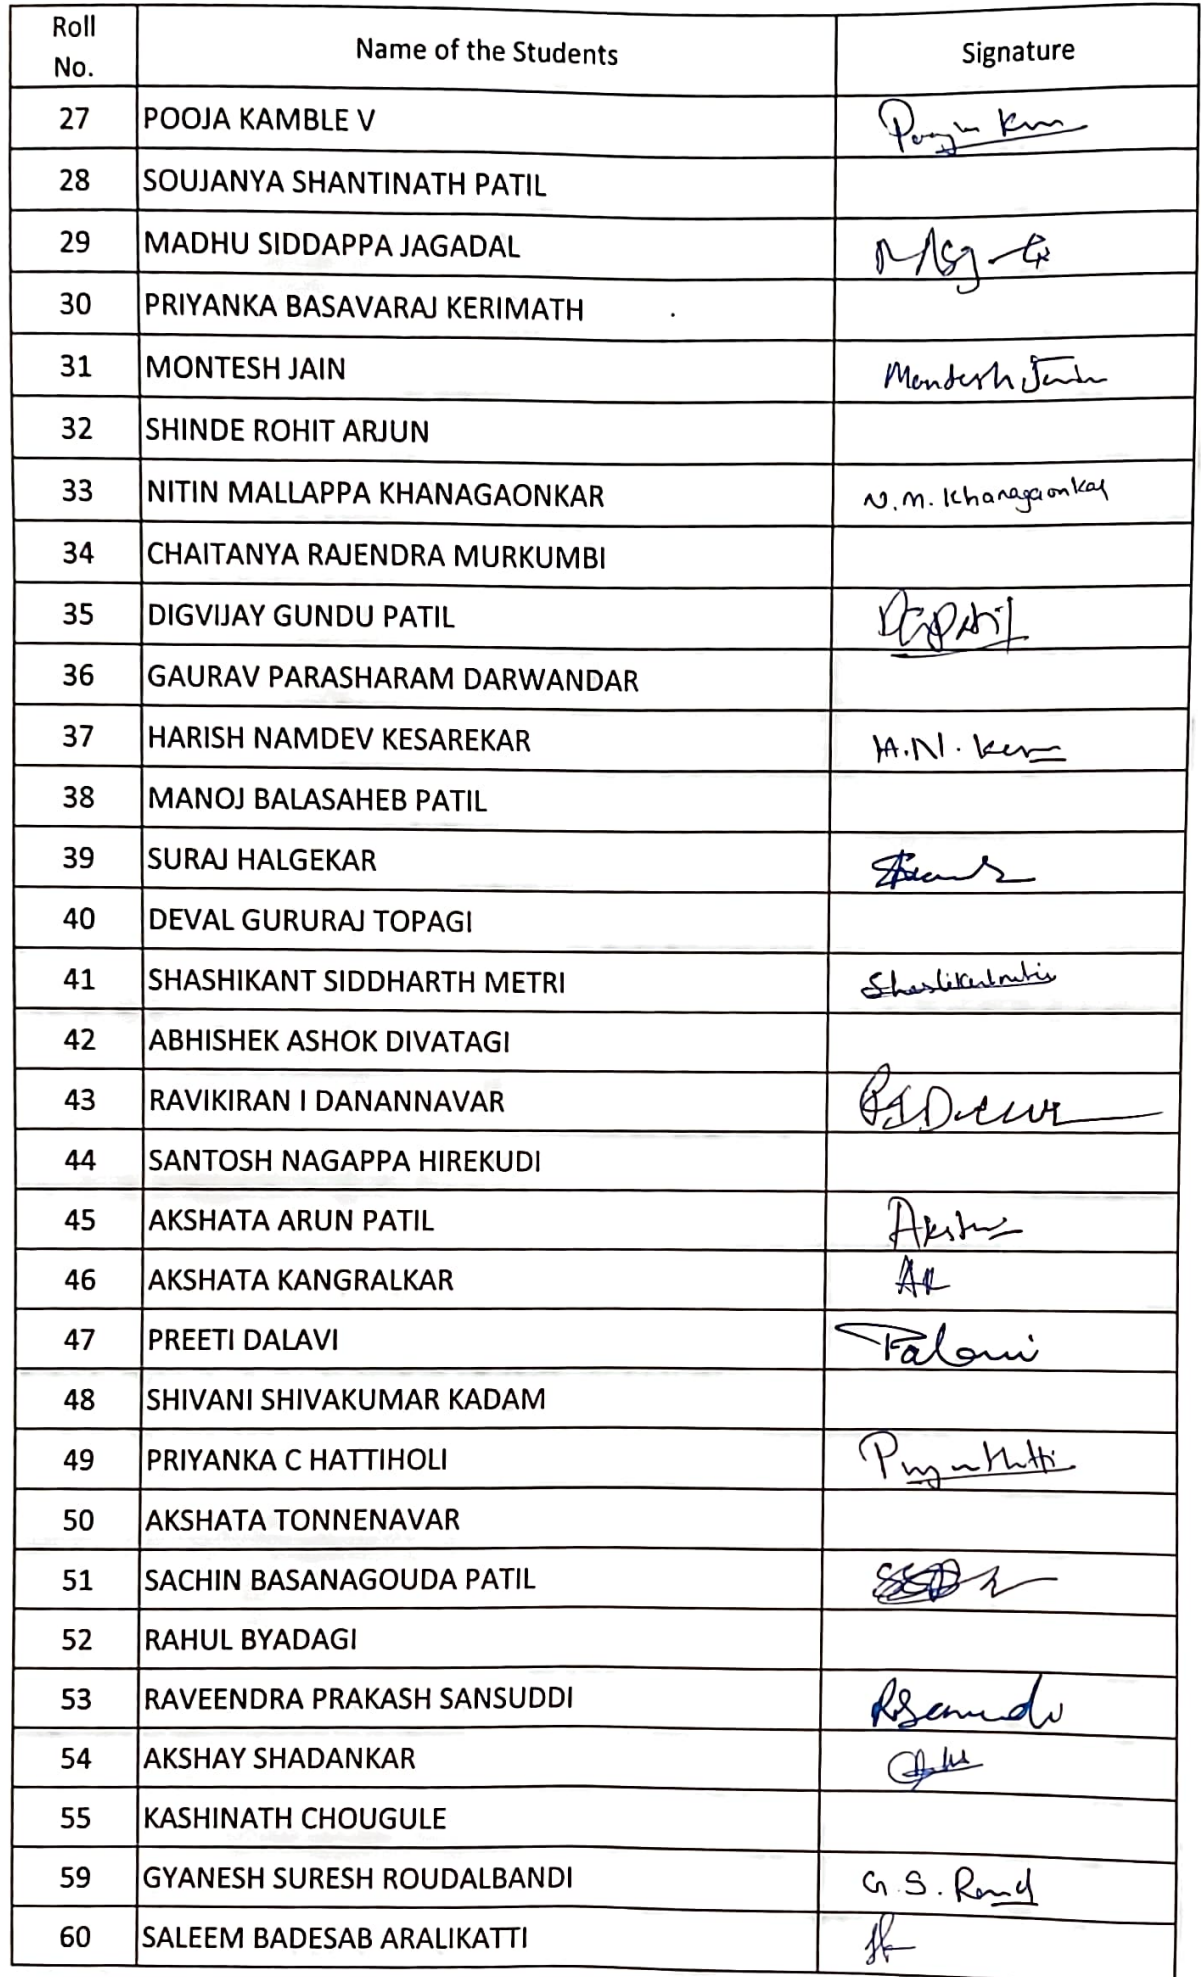 Roll No. Name of the Students Signature
27 POOJA KAMBLE V
28 SOUJANYA SHANTINATH PATIL
29 MADHU SIDDAPPA JAGADAL
30 PRIYANKA BASAVARAJ KERIMATH
31 MONTESH JAIN
32 SHINDE ROHIT ARJUN
33 NITIN MALLAPPA KHANAGAONKAR N.M. Khanagaonkar
34 CHAITANYA RAJENDRA MURKUMBI
35 DIGVIJAY GUNDU PATIL DGPatil
36 GAURAV PARASHARAM DARWANDAR
37 HARISH NAMDEV KESAREKAR H.N.
38 MANOJ BALASAHEB PATIL
39 SURAJ HALGEKAR
40 DEVAL GURURAJ TOPAGI
41 SHASHIKANT SIDDHARTH METRI
42 ABHISHEK ASHOK DIVATAGI
43 RAVIKIRAN I DANANNAVAR
44 SANTOSH NAGAPPA HIREKUDI
45 AKSHATA ARUN PATIL
46 AKSHATA KANGRALKAR AK
47 PREETI DALAVI
48 SHIVANI SHIVAKUMAR KADAM
49 PRIYANKA C HATTIHOLI
50 AKSHATA TONNENAVAR
51 SACHIN BASANAGOUDA PATIL
52 RAHUL BYADAGI
53 RAVEENDRA PRAKASH SANSUDDI
54 AKSHAY SHADANKAR
55 KASHINATH CHOUGULE
59 GYANESH SURESH ROUDALBANDI G.S.
60 SALEEM BADESAB ARALIKATTI